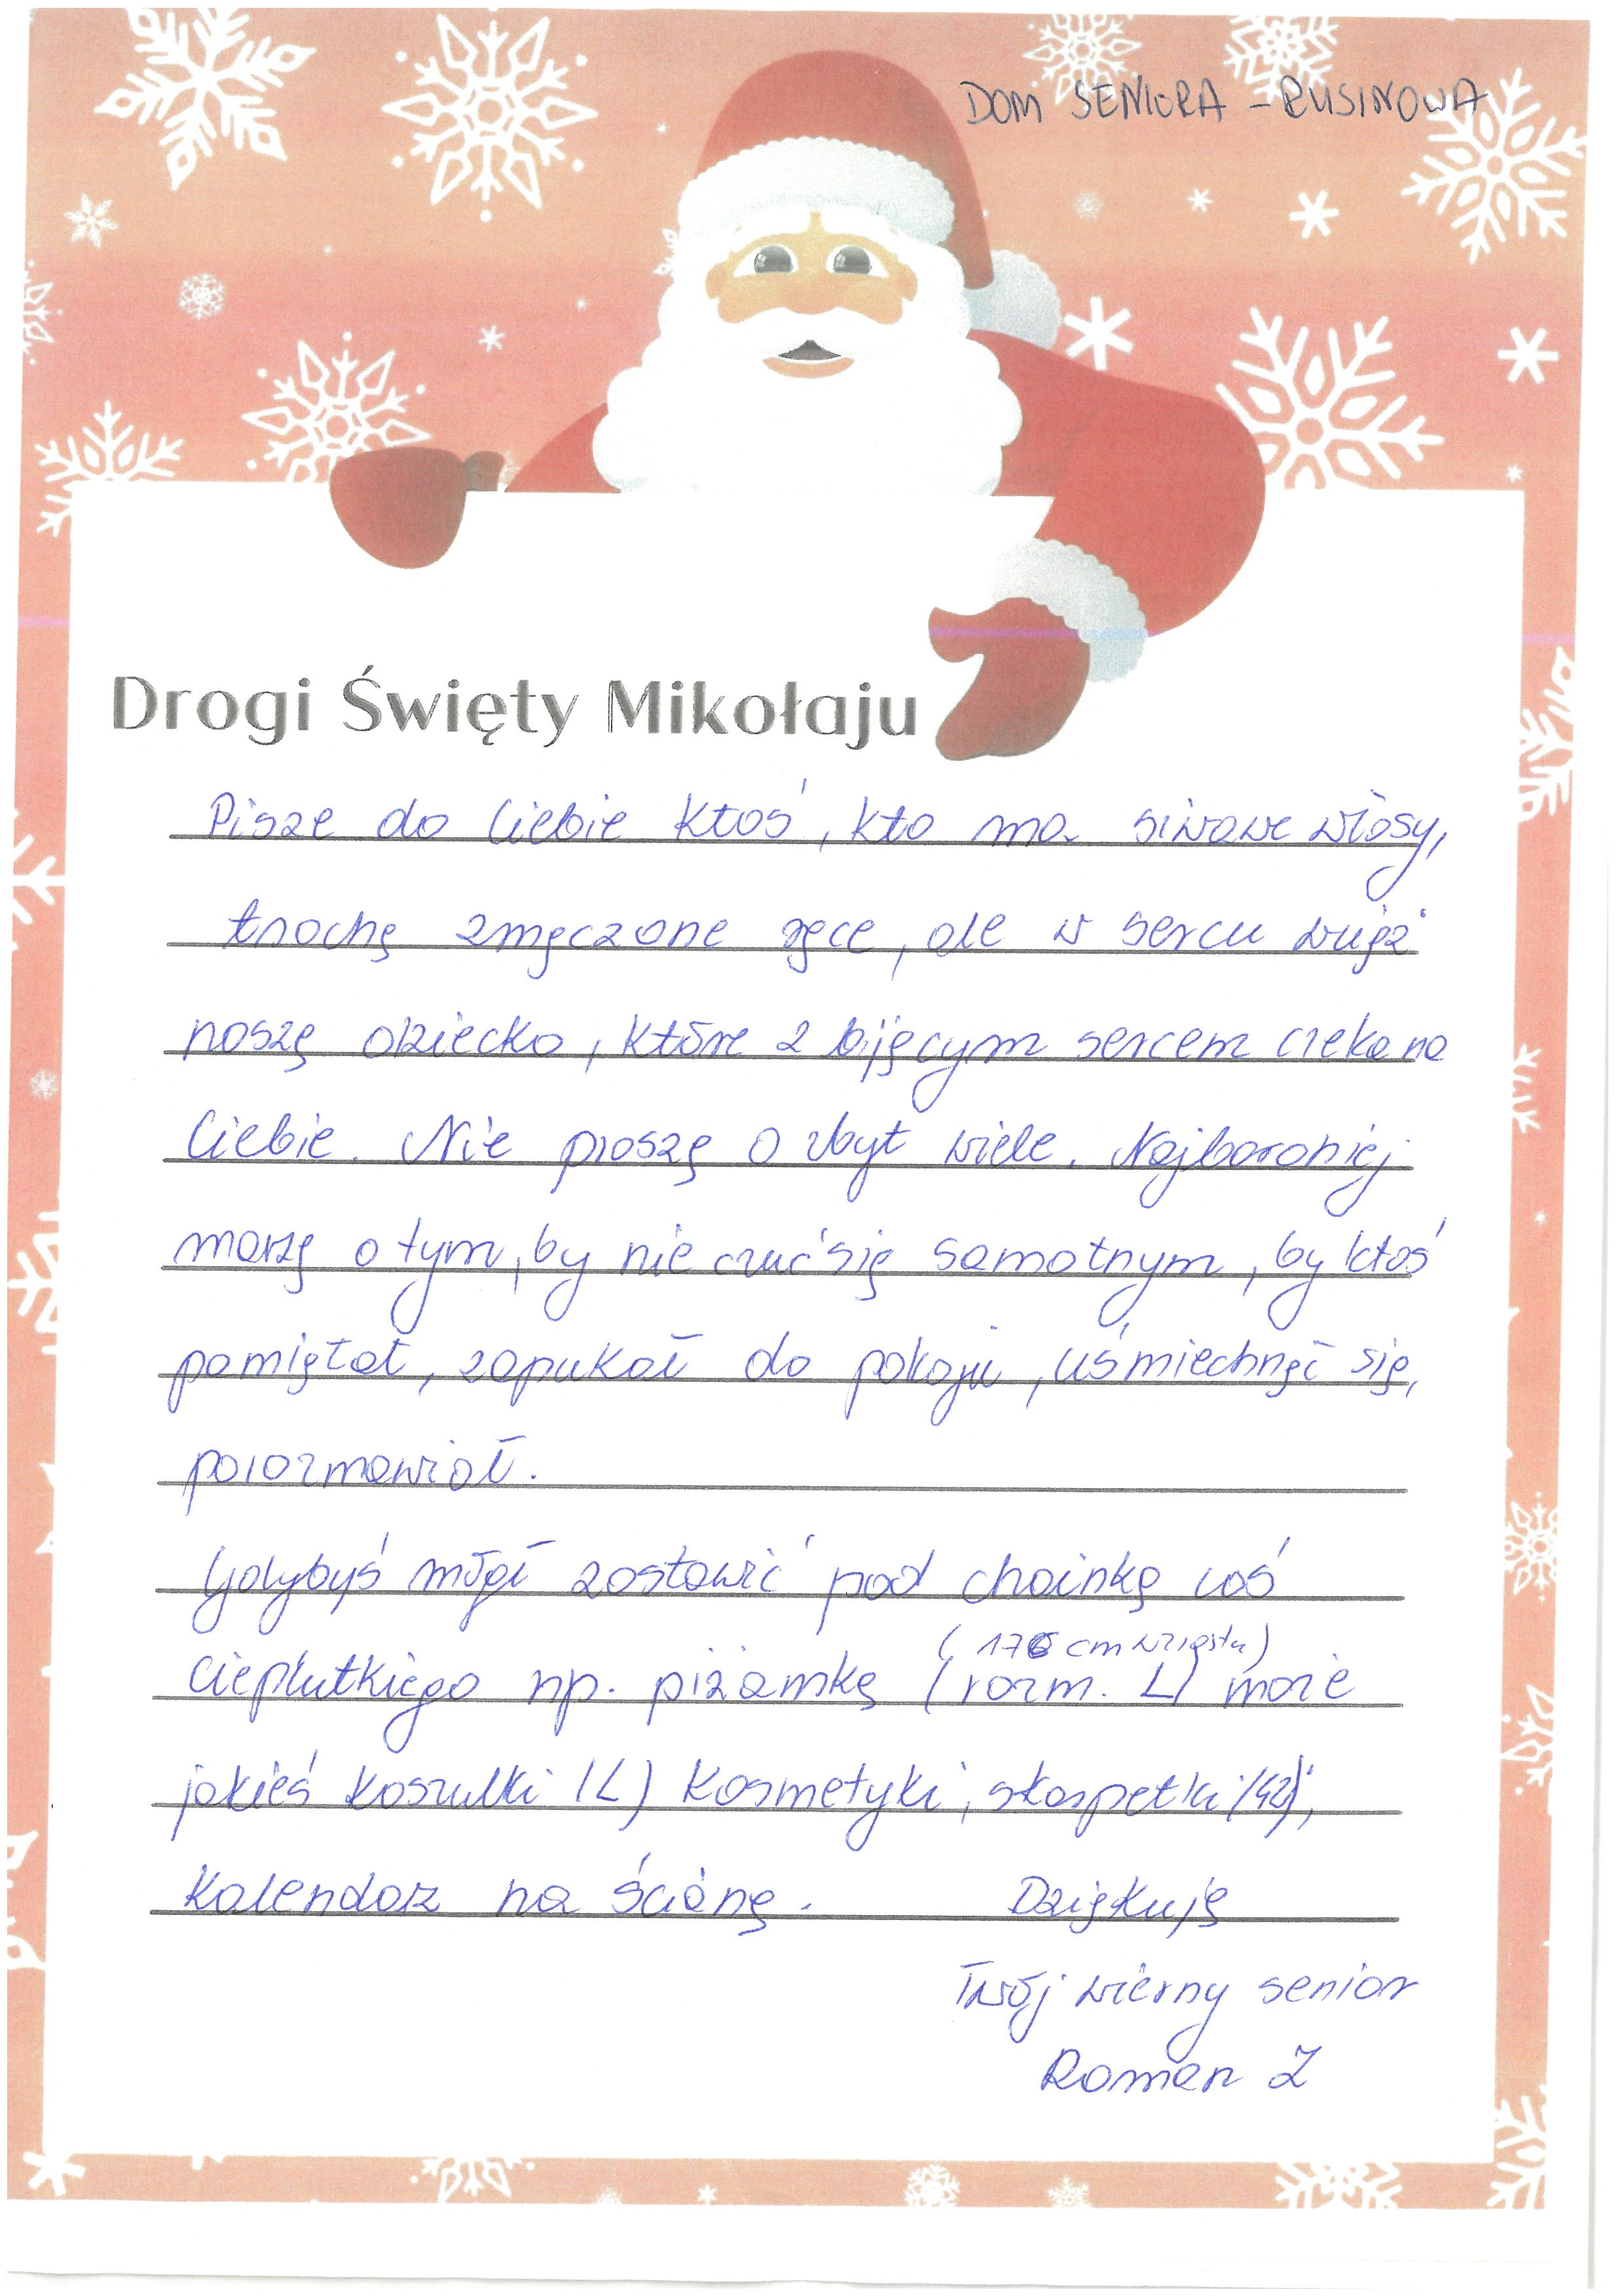 DOM SENIORA - RUSINOWA
Drogi Święty Mikołaju
Pisze do Ciebie ktoś, kto ma siwawe włosy,
trochę zmęczone ręce, ale w sercu wciąż
noszę dziecko, które z bijącym sercem czeka na
Ciebie. Nie proszę o zbyt wiele. Najbardziej
marzę o tym, by nie czuć się samotnym, by ktoś
pamiętał, zapukał do pokoju, uśmiechnął się,
porozmawiał.
Gdybyś mógł zostawić pod choinkę coś
(176 cm wzrostu)
cieplutkiego np. piżamkę (rozm. L) może
jakieś koszulki (L) kosmetyki, skarpetki (42),
Kalendarz na ścianę. Dziękuję
Twój wierny senior
Roman Z